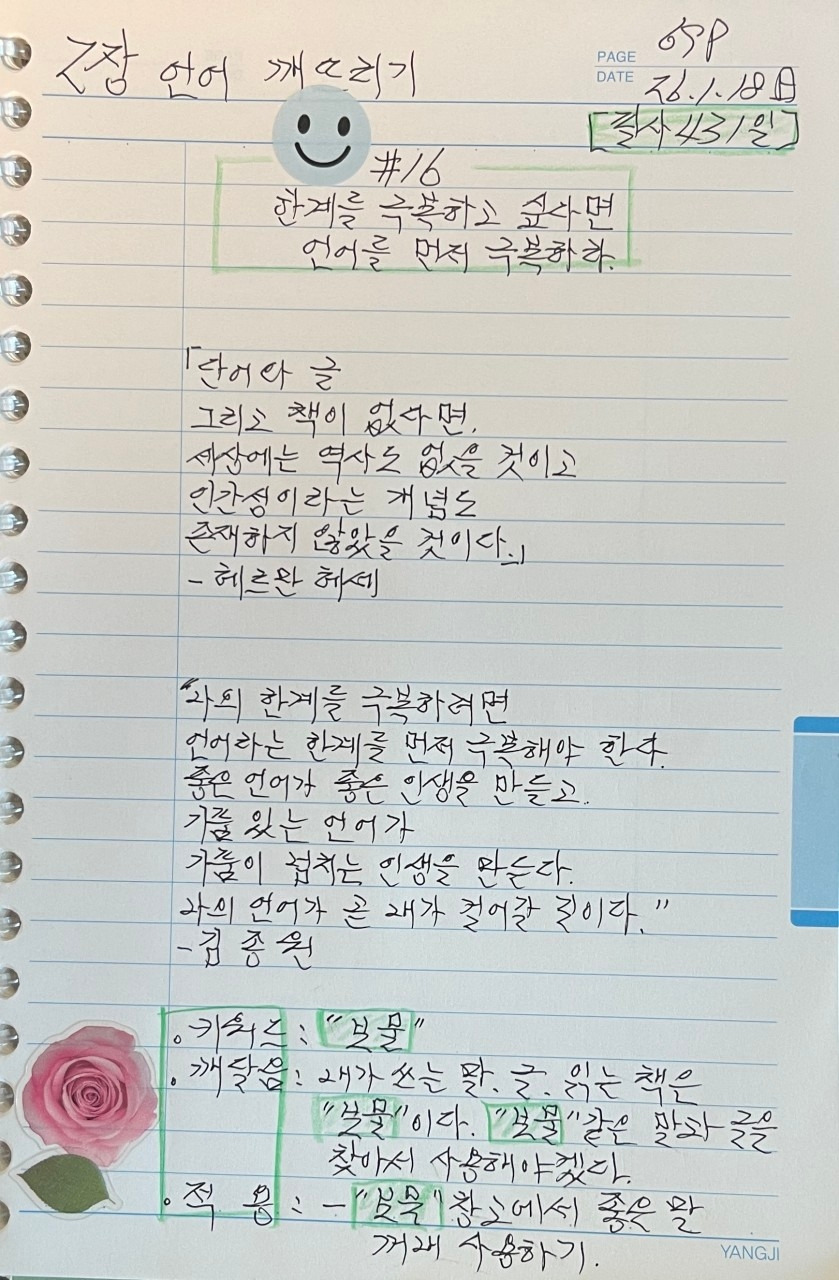 2장 언어 깨뜨리기
PAGE 65P
DATE 26.1.18日
[필사431일]
#16
한계를 극복하고 싶다면
언어를 먼저 극복하라.
「단어와 글
그리고 책이 없다면,
세상에는 역사도 없을 것이고
인간성이라는 개념도
존재하지 않았을 것이다.」
- 헤르만 헤세
"나의 한계를 극복하려면
언어라는 한계를 먼저 극복해야 한다.
좋은 언어가 좋은 인생을 만들고,
기품 있는 언어가
기품이 넘치는 인생을 만든다.
나의 언어가 곧 내가 걸어갈 길이다."
-김종원
• 키워드 : "보물"
• 깨달음 : 내가 쓰는 말, 글, 읽는 책은
"보물"이다. "보물"같은 말과 글을
찾아서 사용해야겠다.
• 적용 : - "보물"창고에서 좋은 말
꺼내 사용하기.
YANGJI